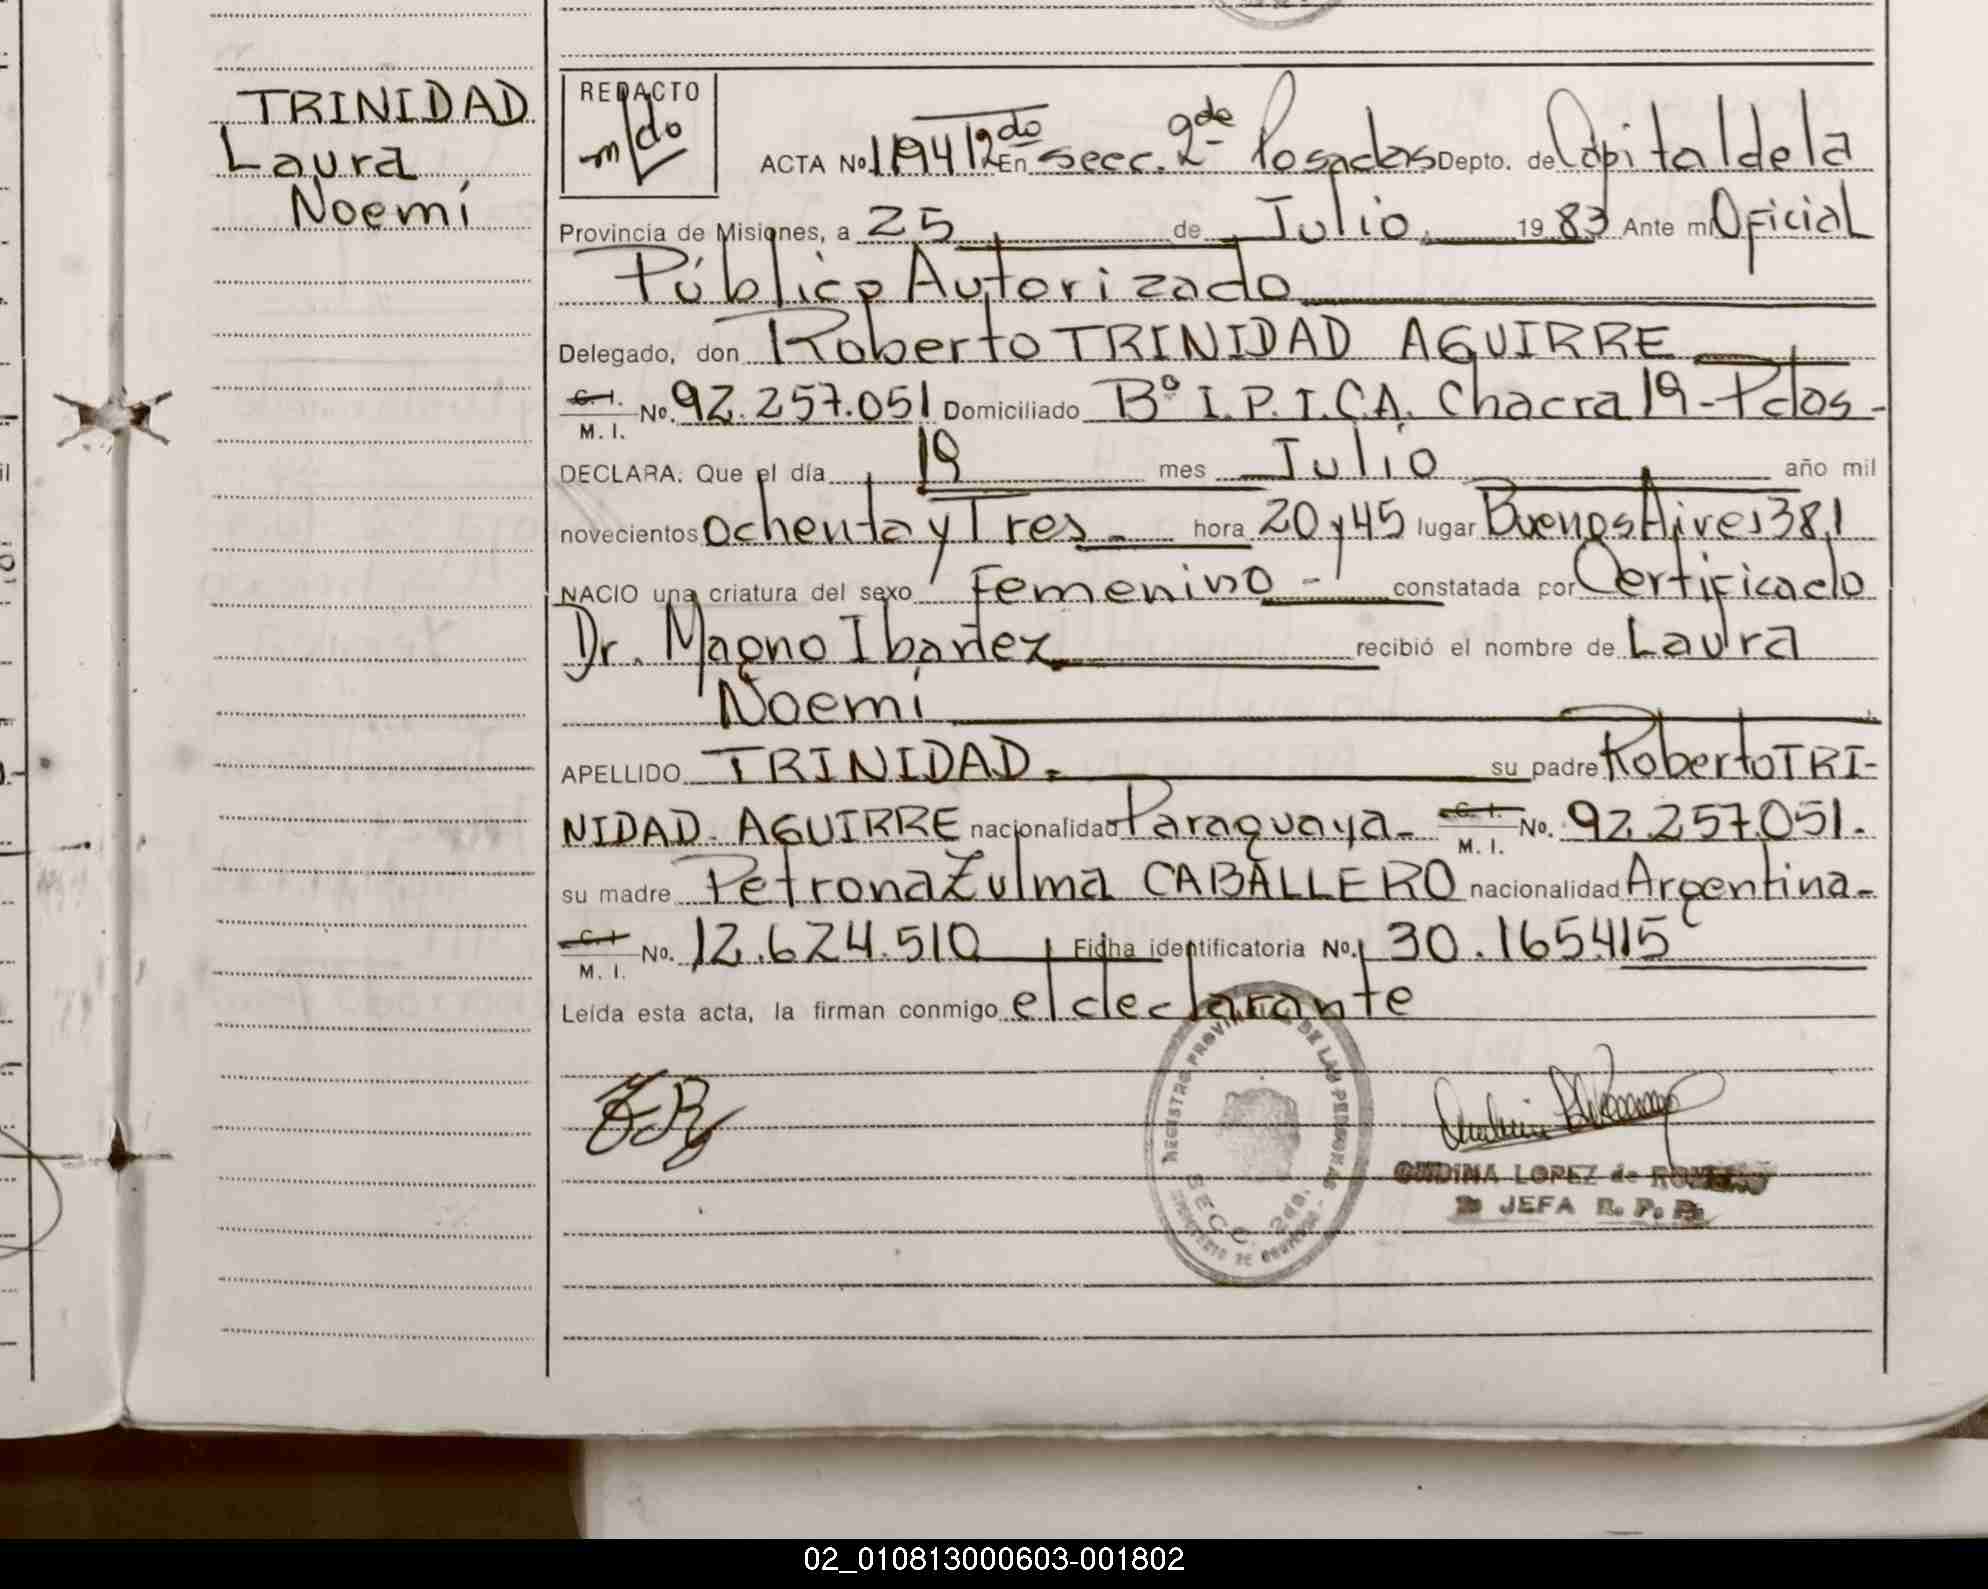 TRINIDAD
Laura
Noemí
REDACTO
m/do
ACTA No 1194 T 2do En secc. 2da de Posadas Depto. de Capital de la
Provincia de Misiones, a 25 de Julio. 1983 Ante mí Oficial
Público Autorizado
Delegado, don Roberto TRINIDAD AGUIRRE
C. I. M. I. No. 92.257.051 Domiciliado Bº I.P.I.C.A. Chacra 19-Pdas-
DECLARA: Que el día 19 mes Julio año mil
novecientos ochenta y Tres - hora 20 y 45 lugar Buenos Aires 381
NACIO una criatura del sexo Femenino - constatada por Certificado
Dr. Magno Ibañez recibió el nombre de Laura
Noemí
APELLIDO TRINIDAD.- su padre Roberto TRI-
NIDAD AGUIRRE nacionalidad Paraguaya- C. I. M. I. No. 92.257.051.
su madre Petrona Zulma CABALLERO nacionalidad Argentina-
C. I. M. I. No. 12.624.510 Ficha identificatoria No. 30.165.415
Leída esta acta, la firman conmigo el declarante
REGISTRO PROVINCIAL DE LAS PERSONAS
SECC. 2da.
LOPEZ de
JEFA R. P. P.
02_010813000603-001802